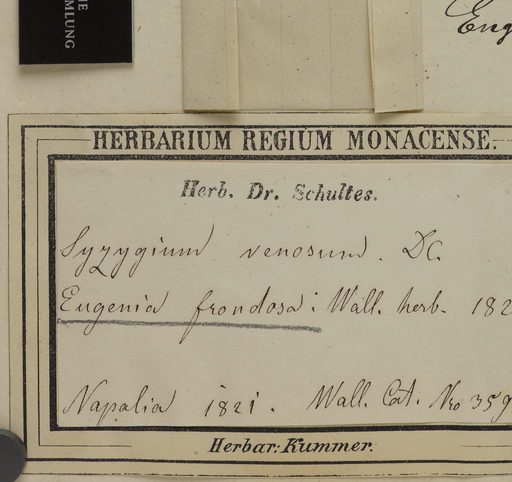 NE
MLUNG
Eug
HERBARIUM REGIUM MONACENSE.
Herb. Dr. Schultes.
Syzygium venosum. DC.
Eugenia frondosa: Wall. herb. 182
Napalia 1821. Wall. Cat. No 359
Herbar: Kummer.